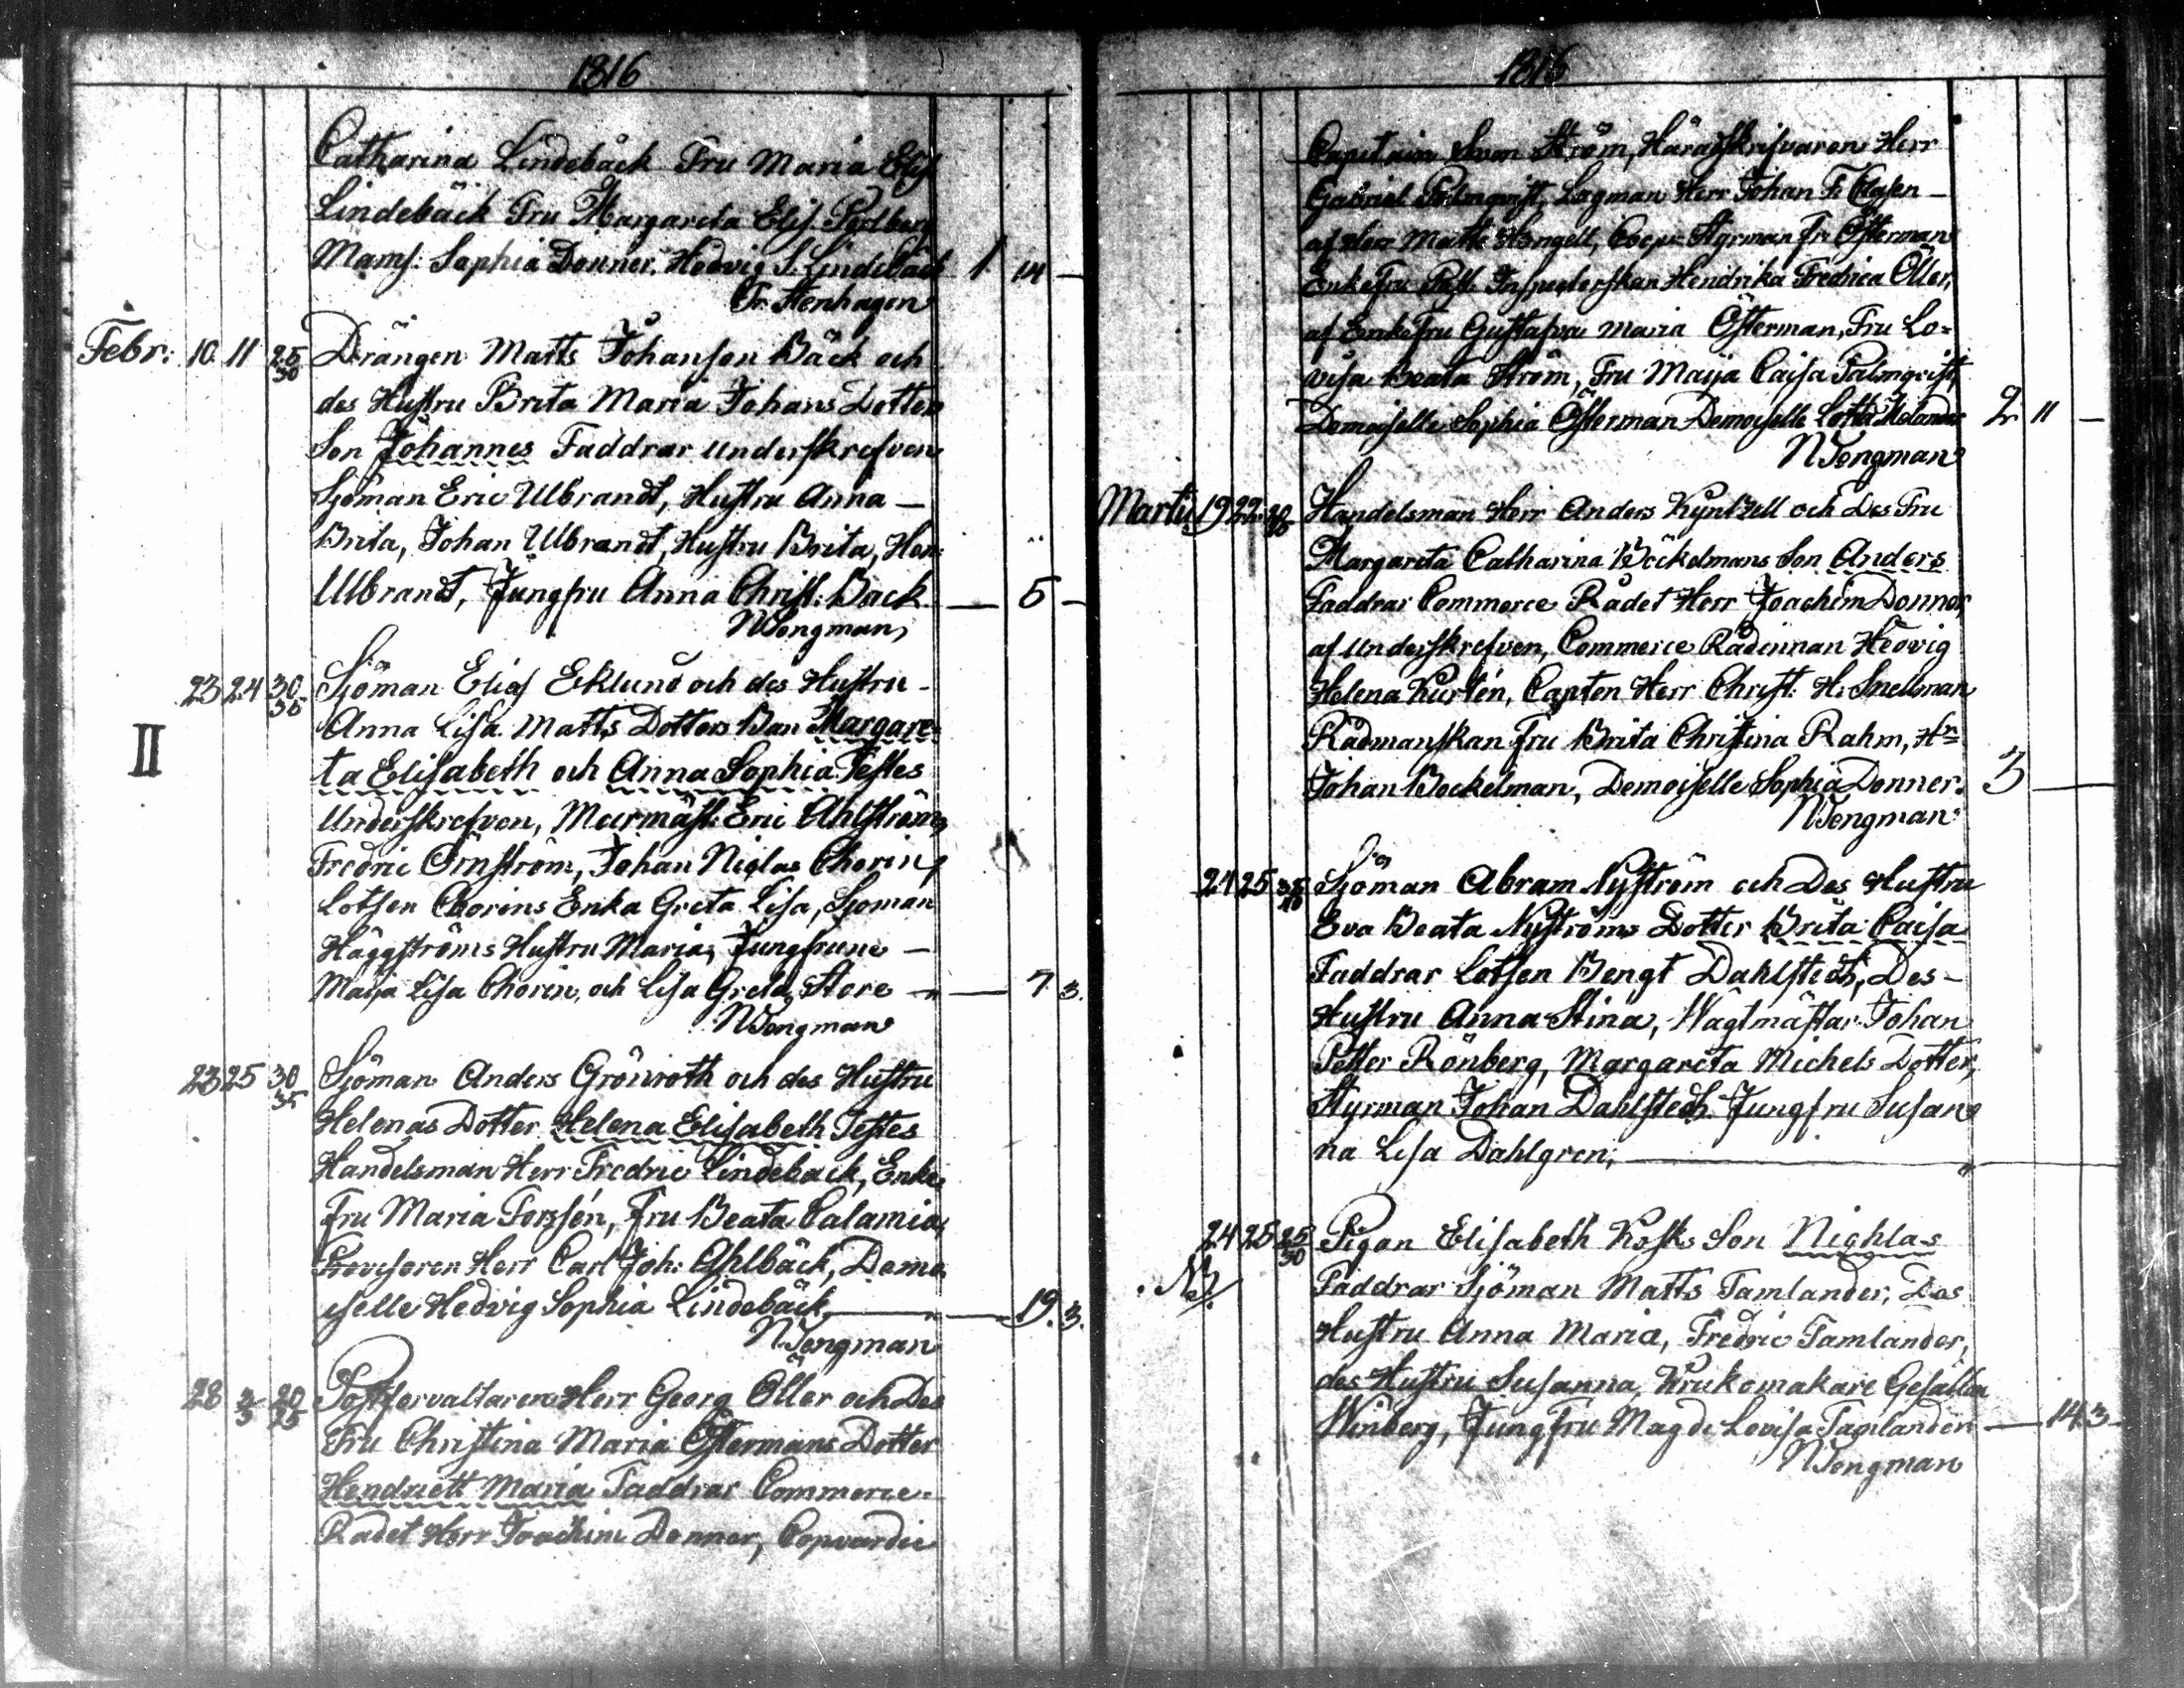 1816
Catharina Lindebäck Fru Maria Elis
Lindebäck Fru Margareta Elis.
Mams: Sophia Donner, Hedvig S. Lindebäck 1 14 —
Fr. Stenhagen
Febr: 10 11 25/30 Drängen Matts Johanson Bäck och
des Hustru Brita Maria Johans Dotters
Son Johannes Faddrar underskrefven
Sjöman Eric Ulbrandt, Hustru Anna —
Brita, Johan Ulbrandt, Hustru Brita, Hen:
Ulbrandt, Jungfru Anna Christ: Back — 5 —
NTengman
23 24 30/35 Sjöman Elias Eklund och des Hustru
Anna Lisa Matts Dotters Barn Margare=
II
ta Elisabeth och Anna Sophia Testes
Underskrefven, Murmäst: Eric Ahlström,
Fredric Örnström, Johan Niclas Chorin,
Lotsen Chorins Enka Greta Lisa, Sjöman
Häggströms Hustru Maria, Jungfrune —
Maja Lisa Chorin, och Lisa Greta Store — 7 3.
NTengman
23 25 30/35 Sjöman Anders Grönroth och des Hustru
Helenas Dotter Helena Elisabeth Testes
Handelsman Herr Fredric Lindebäck, Enke
Fru Maria Forssén, Fru Beata Calamia,
Provisoren Herr Carl Joh: Ahlbäck, Demo
iselle Hedvig Sophia Lindebäck — 19. 3.
NTengman
28 2/3 20/25 Postforvaltaren Herr Georg Öller och Des
Fru Christina Maria Östermans Dotter
Hendriett Maria Faddrar Commerce=
Radet Herr Joachim Donner, Copvardie
1816
Capitain Sven Ström, Häradskrifvaren Herr
Gabriel Palmqvist, Lagman Herr Johan F. Clasen —
af Herr Matts Hongell, Coop: Styrman Fr: Österman
Enkefru Post Inspectorskan Hendrika Fredrica Öller,
af Enkefru Gustafva Maria Österman, Fru Lo=
visa Beata Ström, Fru Maja Caisa Palmqvist,
Demoiselle Sophia Österman Demoiselle Lotta 2 11 —
NTengman
Martii 19 22 Handelsman Herr Anders Kyntzell och Des Fru
Margareta Catharina Böckelmans Son Anders
Faddrar Commerce Rådet Herr Joachim Donner,
af underskrefven, Commerce Rådinnan Hedvig
Helena Kurtén, Capten Herr Christ: H. Snellman
Rådmanskan Fru Brita Christina Rahm, Hr
Johan Bockelman, Demoiselle Sophia Donner. 3 —
NTengman
24 25 35/40 Sjöman Abram Nyström och Des Hustru
Eva Beata Nyströms Dotter Brita Caisa
Faddrar Lotsen Bengt Dahlstedt, Des —
Hustru Anna Stina, Wagtmästar Johan
Petter Rönberg, Margareta Michels Dotter,
Styrman Johan Dahlstedt Jungfru Susan
na Lisa Dahlgren;
24 25 25/30 Pigan Elisabeth Kosks Son Nichlas
Faddrar Sjöman Matts Tamlander, Des
Hustru Anna Maria, Fredric Tamlander,
des Hustru Susanna, Krukomakare Gesällen
Winberg, Jungfru Magd: Lovisa Tamlander — 14 3
NTengman